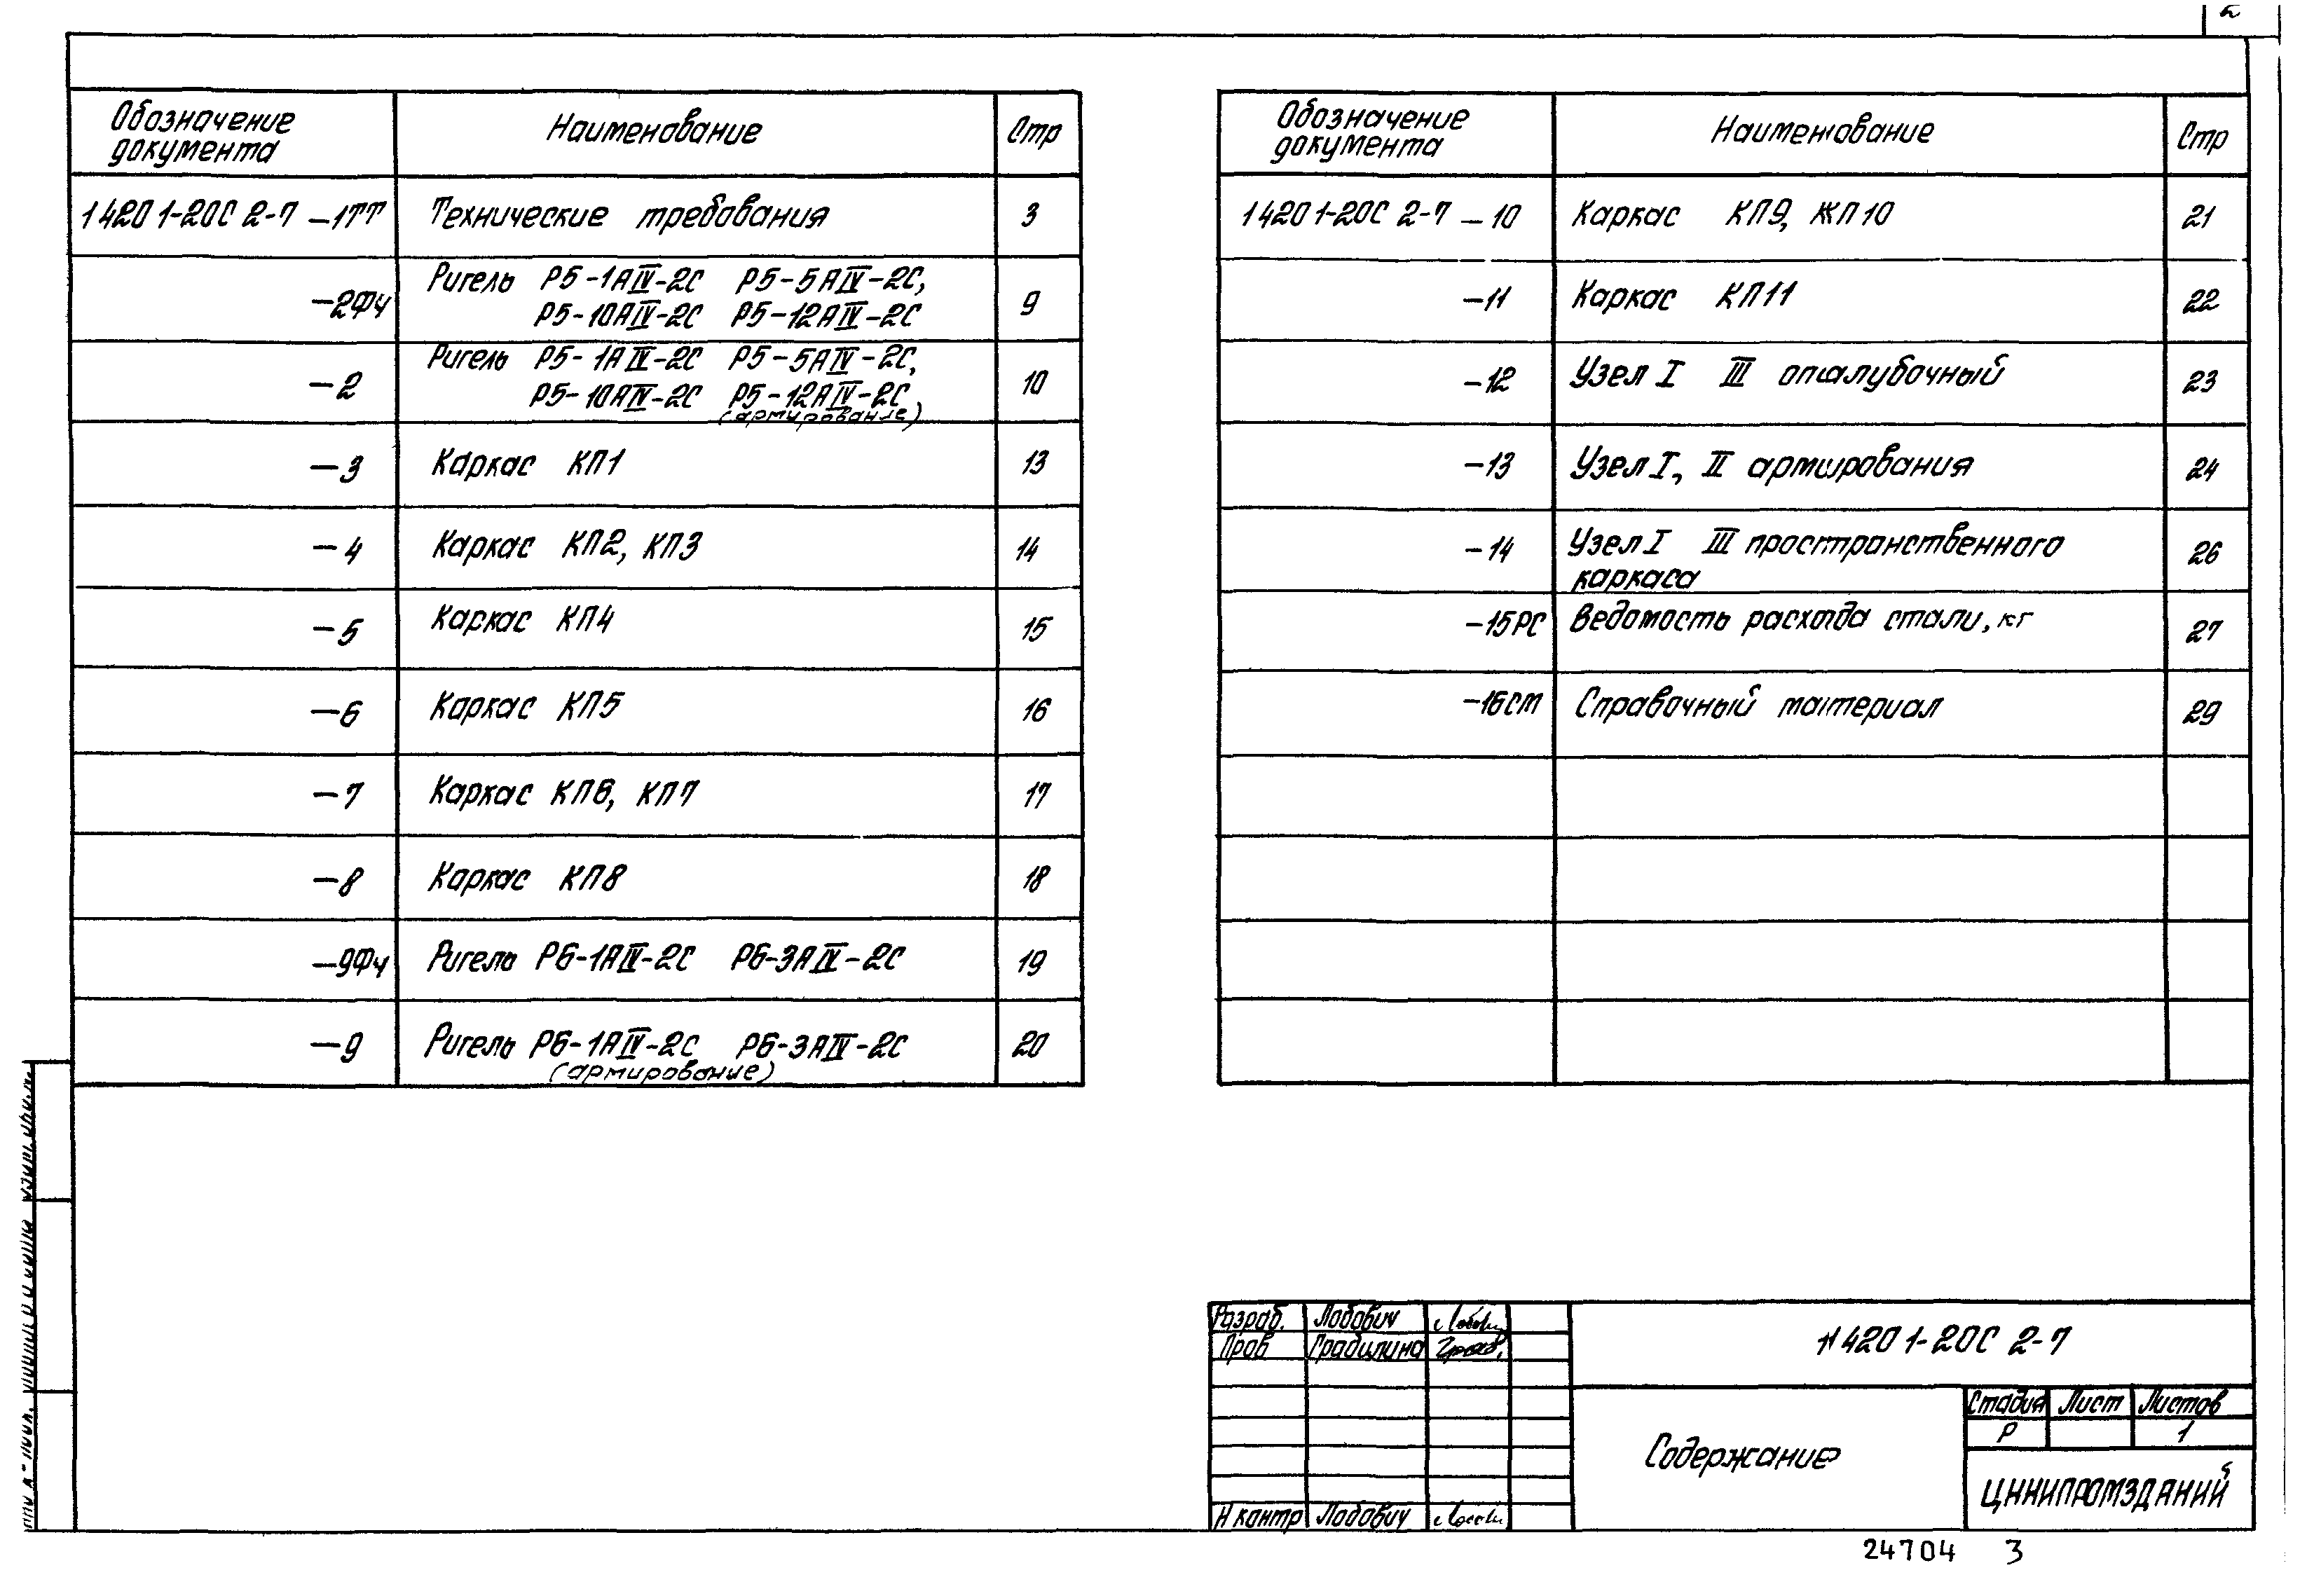 2
Обозначение документа Наименование Стр
1 420 1-20С 2-7 -1ТТ Технические требования 3
-2ФЧ Ригель Р5-1АIV-2С Р5-5АIV-2С, 9
Р5-10АIV-2С Р5-12АIV-2С
-2 Ригель Р5-1АIV-2С Р5-5АIV-2С, 10
Р5-10АIV-2С Р5-12АIV-2С
(армирование)
-3 Каркас КП1 13
-4 Каркас КП2, КП3 14
-5 Каркас КП4 15
-6 Каркас КП5 16
-7 Каркас КП6, КП7 17
-8 Каркас КП8 18
-9ФЧ Ригель Р6-1АIV-2С Р6-3АIV-2С 19
-9 Ригель Р6-1АIV-2С Р6-3АIV-2С 20
(армирование)
Обозначение документа Наименование Стр
1 420 1-20С 2-7 -10 Каркас КП9, КП10 21
-11 Каркас КП11 22
-12 Узел I III опалубочный 23
-13 Узел I, II армирования 24
-14 Узел I III пространственного 26
каркаса
-15РС Ведомость расхода стали, кг 27
-16СМ Справочный материал 29
Разраб. Лобович
Пров Градилина
Н контр Лобович
1 420 1-20С 2-7
Содержание
Стадия Лист Листов
Р 1
ЦНИИПРОМЗДАНИЙ
24704 3